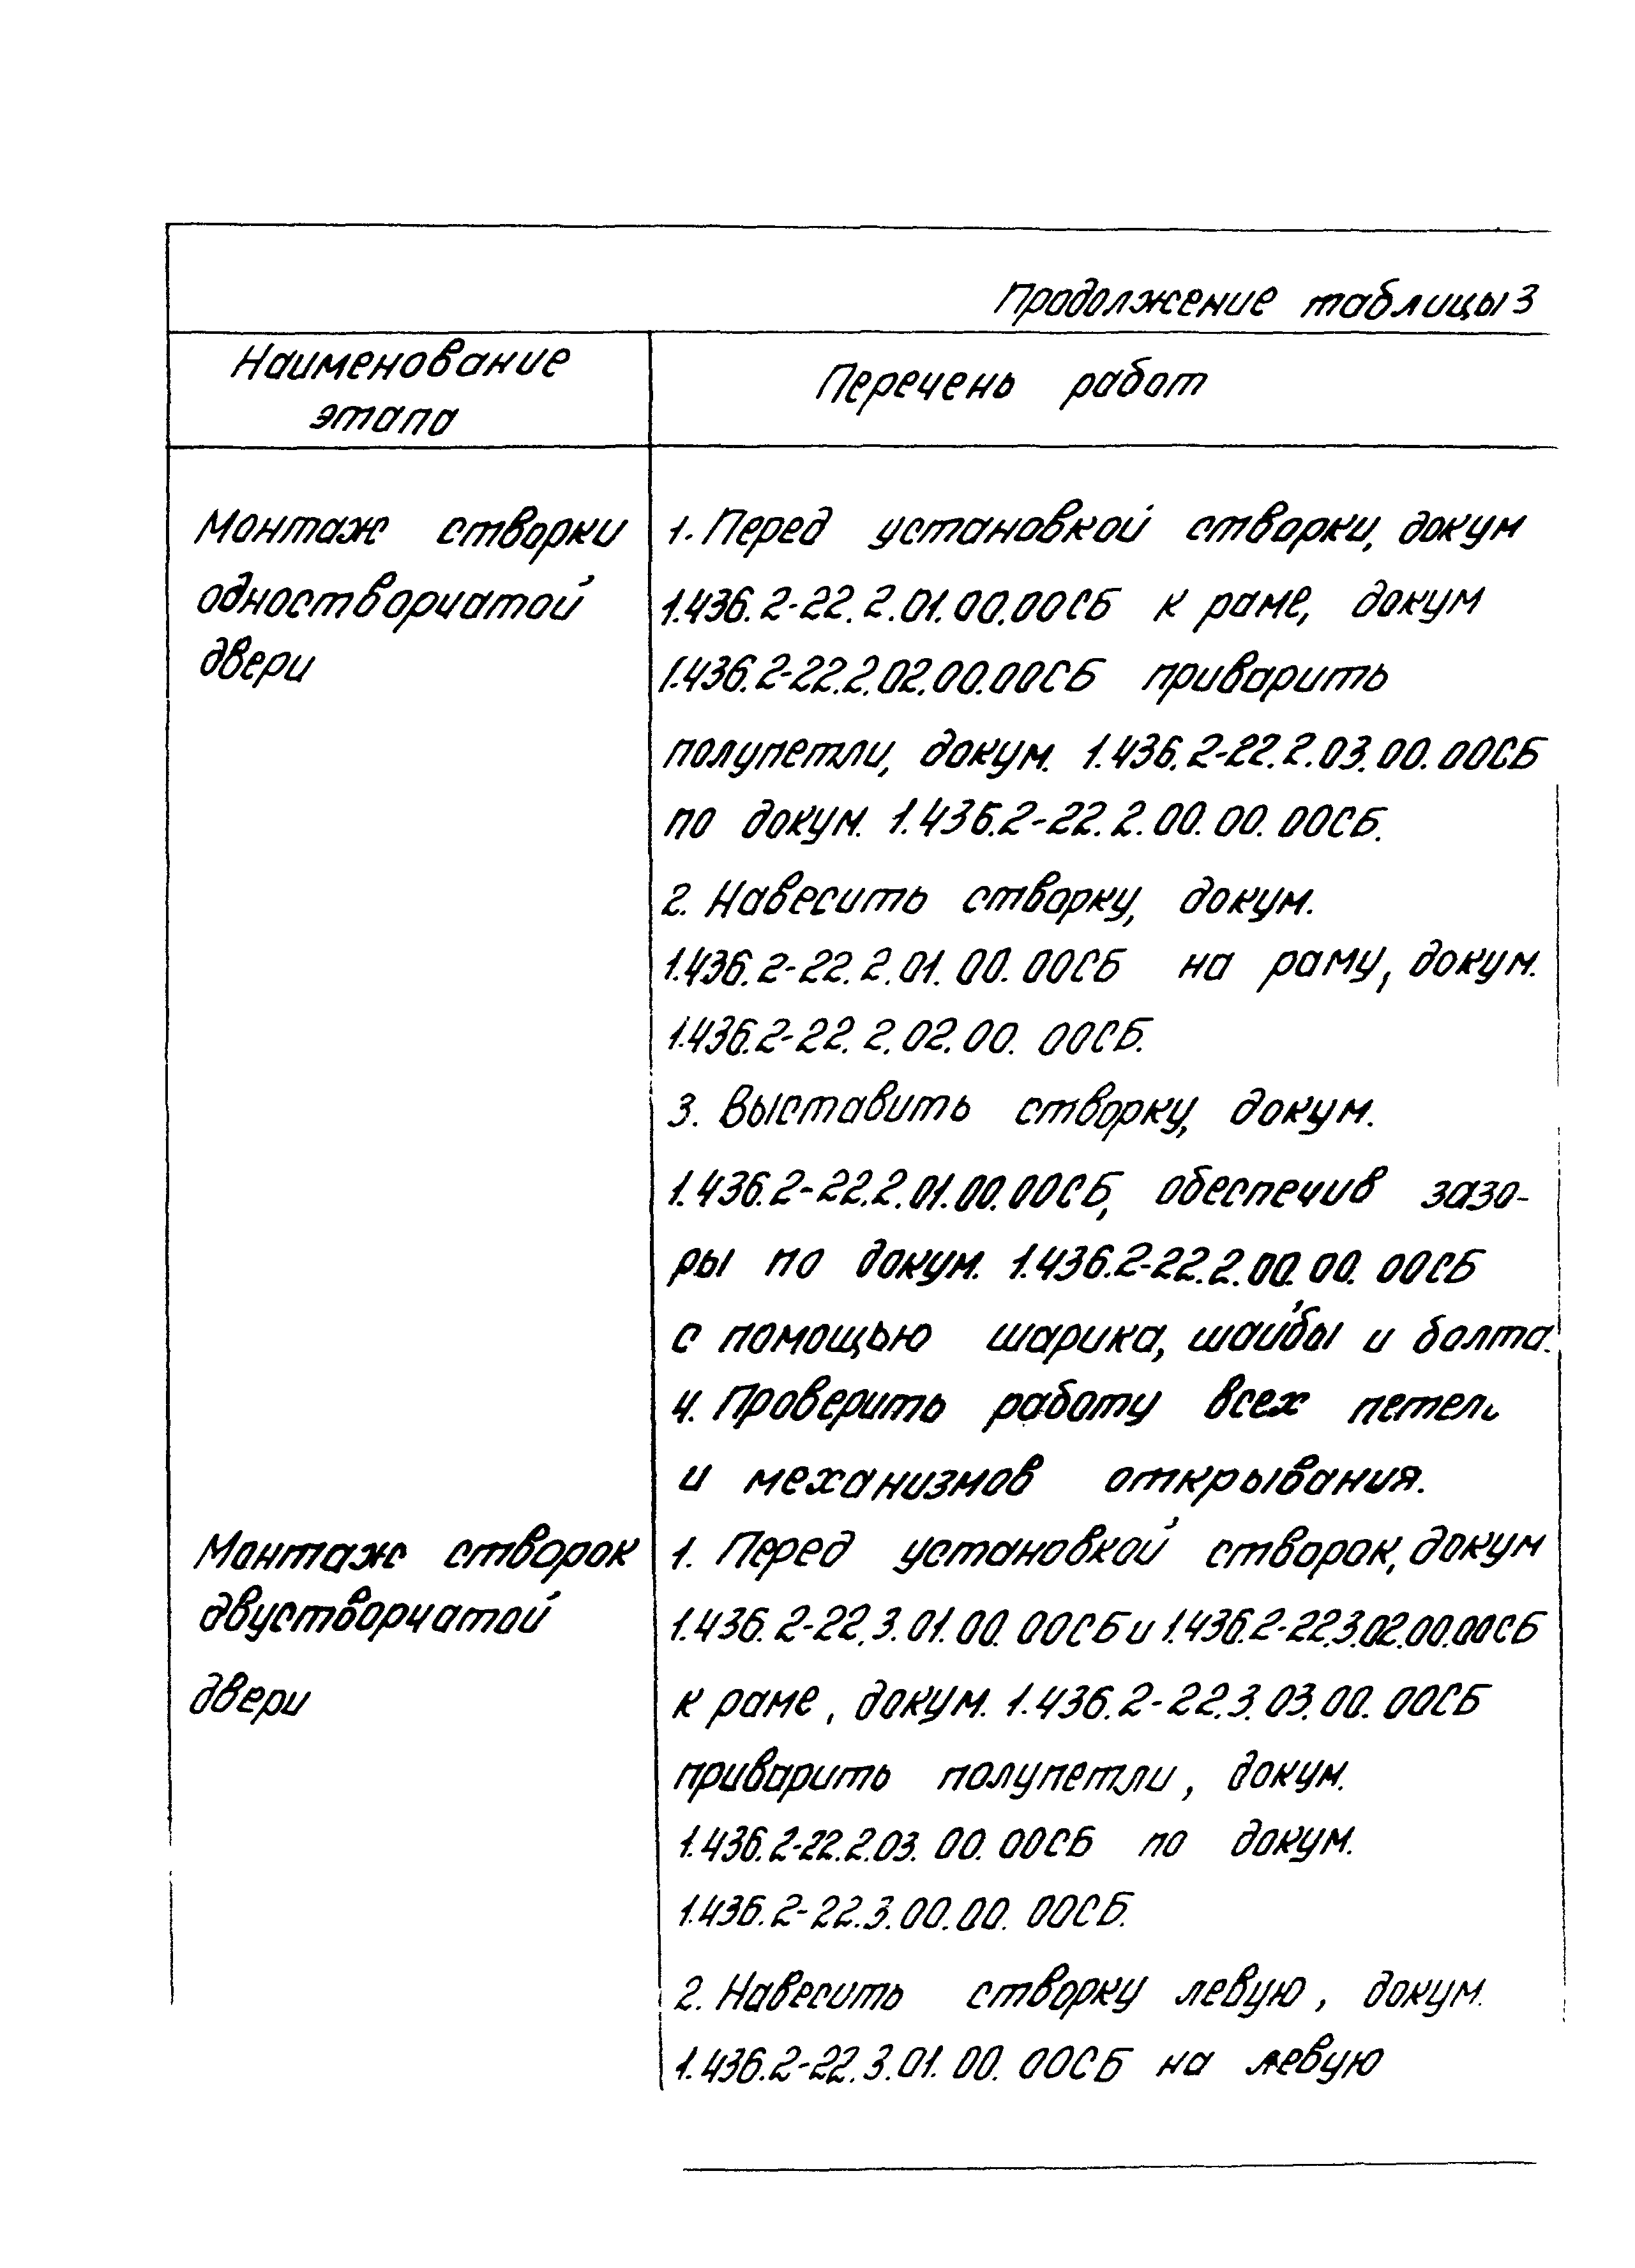 Продолжение таблицы 3
Наименование
этапа
Перечень работ
Монтаж створки
одностворчатой
двери
1. Перед установкой створки, докум
1.436.2-22.2.01.00.00СБ к раме, докум
1.436.2-22.2.02.00.00СБ приварить
полупетли, докум. 1.436.2-22.2.03.00.00СБ
по докум. 1.436.2-22.2.00.00.00СБ.
2. Навесить створку, докум.
1.436.2-22.2.01.00.00СБ на раму, докум.
1.436.2-22.2.02.00.00СБ.
3. Выставить створку, докум.
1.436.2-22.2.01.00.00СБ, обеспечив зазо-
ры по докум. 1.436.2-22.2.00.00.00СБ
с помощью шарика, шайбы и болта.
4. Проверить работу всех петель
и механизмов открывания.
Монтаж створок
двустворчатой
двери
1. Перед установкой створок, докум
1.436.2-22.3.01.00.00СБ и 1.436.2-22.3.02.00.00СБ
к раме, докум. 1.436.2-22.3.03.00.00СБ
приварить полупетли, докум.
1.436.2-22.2.03.00.00СБ по докум.
1.436.2-22.3.00.00.00СБ.
2. Навесить створку левую, докум.
1.436.2-22.3.01.00.00СБ на левую